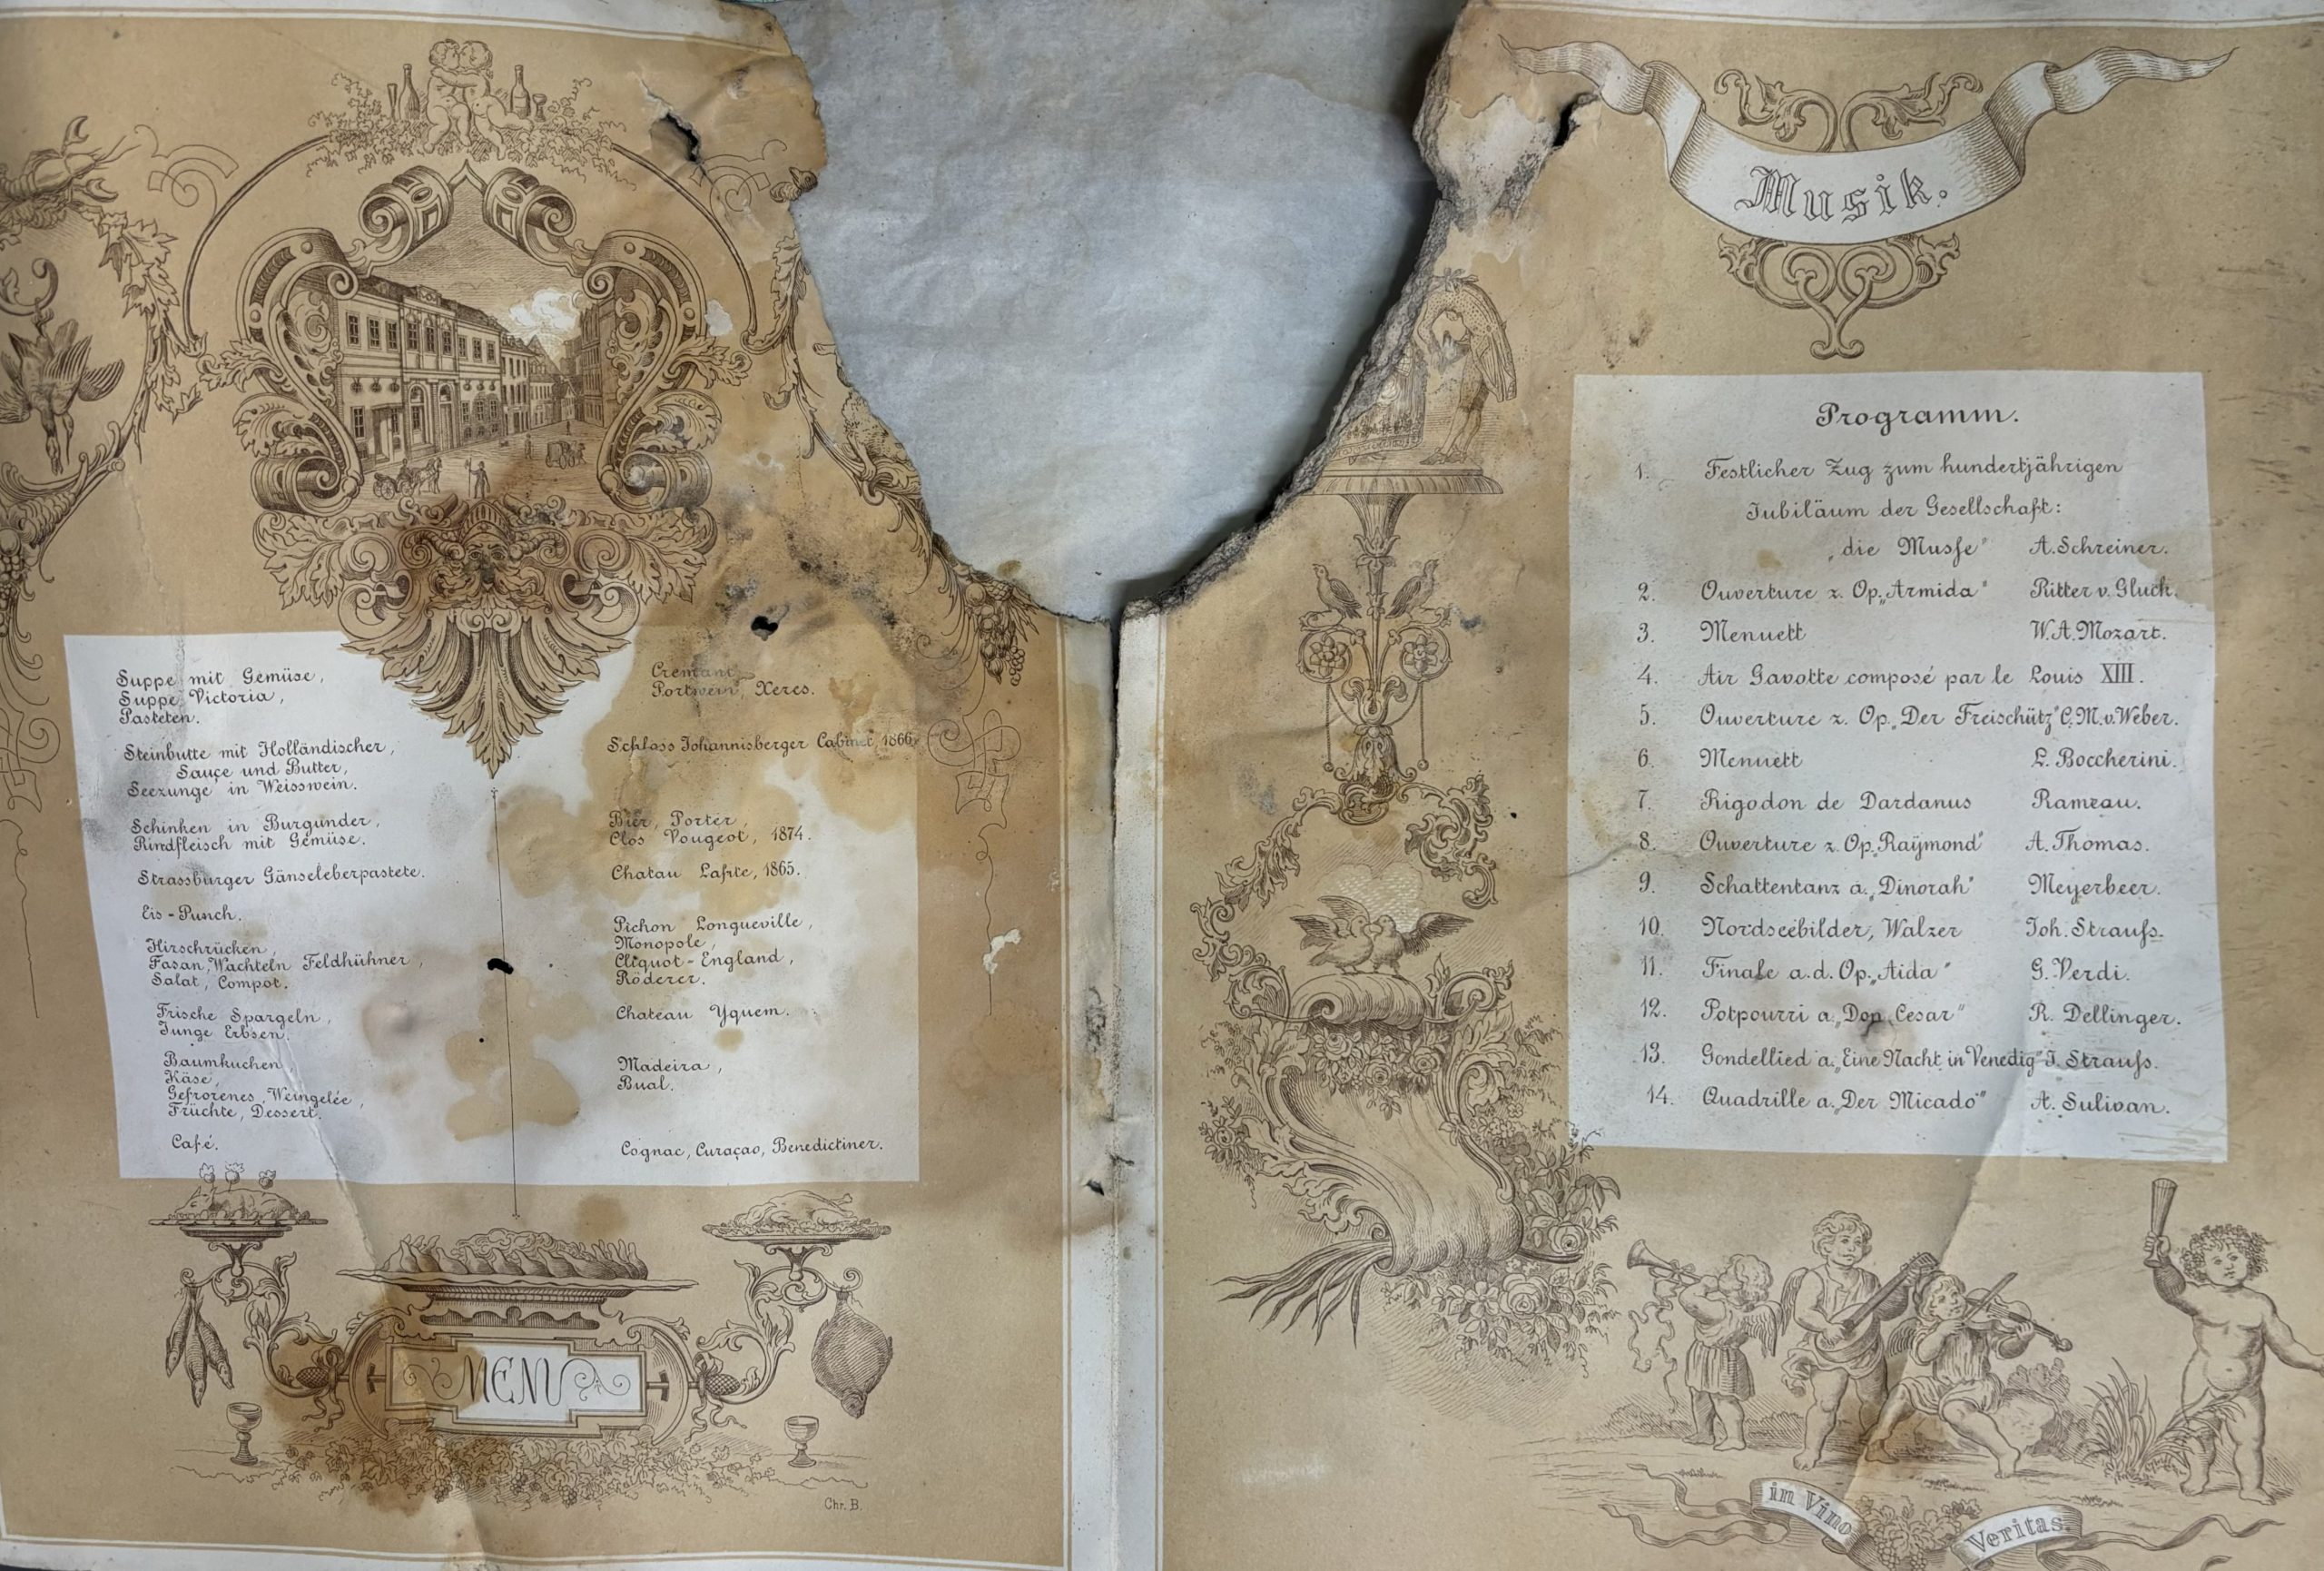 Suppe mit Gemüse,
Suppe Victoria,
Pasteten.
Steinbutte mit Holländischer,
Sauçe und Butter,
Seezunge in Weisswein.
Schinken in Burgunder,
Rindfleisch mit Gemüse.
Strassburger Gänseleberpastete.
Eis-Punch.
Hirschrücken,
Fasan, Wachteln Feldhühner,
Salat, Compot.
Frische Spargeln,
Junge Erbsen.
Baumkuchen
Käse,
Gefrorenes, Weingelée,
Früchte, Dessert.
Café.
Cremant,
Portwein, Xeres.
Schloss Johannisberger Cabinet, 1866.
Bier, Porter,
Clos Vougeot, 1874.
Chatau Lafite, 1865.
Pichon Longueville,
Monopole,
Cliquot-England,
Röderer.
Chateau Yquem.
Madeira,
Bual.
Cognac, Curaçao, Benedictiner.
MENU
Chr. B.
Musik.
Programm.
1. Festlicher Zug zum hundertjährigen
Jubiläum der Gesellschaft:
„die Musse" A. Schreiner.
2. Ouverture z. Op. „Armida" Ritter v. Gluck.
3. Menuett W. A. Mozart.
4. Air Gavotte composé par le Louis XIII.
5. Ouverture z. Op. „Der Freischütz" C. M. v. Weber.
6. Menuett L. Boccherini.
7. Rigodon de Dardanus Rameau.
8. Ouverture z. Op. „Raÿmond" A. Thomas.
9. Schattentanz a. „Dinorah" Meyerbeer.
10. Nordseebilder, Walzer Joh. Straufs.
11. Finale a. d. Op. „Aida" G. Verdi.
12. Potpourri a. „Don Cesar" R. Dellinger.
13. Gondellied a. „Eine Nacht in Venedig" J. Straufs.
14. Quadrille a. „Der Micado" A. Sulivan.
in Vino
Veritas.